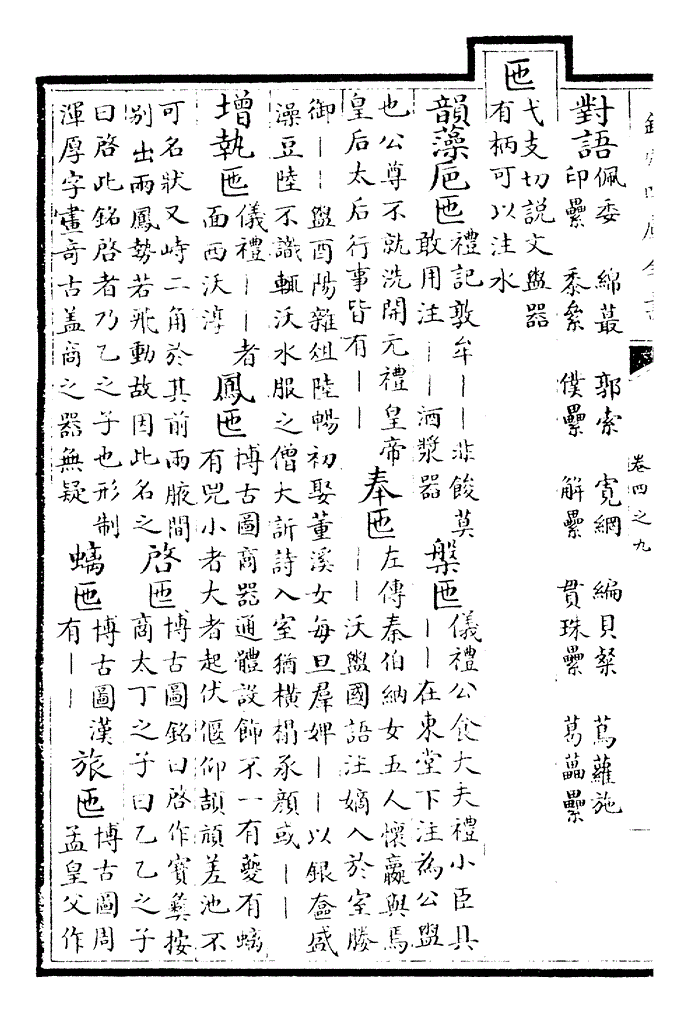 卷四之九
對語
佩委　綿蕞　郭索　寬網　編貝粲　蔦蘿施
印纍　黍絫　僕纍　解纍　貫珠纍　葛藟纍
匜
弋支切說文盥器
有柄可以注水
韻藻巵匜
禮記敦牟丨丨非餕莫
敢用注丨丨酒漿器
槃匜
儀禮公食大夫禮小臣具
丨丨在東堂下注為公盥
也公尊不就洗開元禮皇帝
皇后太后行事皆有丨丨
奉匜
左傳秦伯納女五人懷嬴與焉
丨丨沃盥國語注嫡入於室媵
御丨丨盥酉陽雜俎陸暢初娶董溪女每旦羣婢丨丨以銀奩盛
澡豆陸不識輒沃水服之僧大訢詩入室猶橫榻承顏或丨丨
增執匜
儀禮丨丨者
面西沃淳
鳳匜
博古圖商器通體設飾不一有夔有螭
有兕小者大者起伏偃仰頡頏差池不
可名狀又峙二角於其前兩腋間
别出兩鳳勢若飛動故因此名之
啓匜
博古圖銘曰啓作寳彝按
商太丁之子曰乙乙之子
曰啓此銘啓者乃乙之子也形制
渾厚字畫奇古盖商之器無疑
螭匜
博古圖漢
有丨丨
旅匜
博古圖周
孟皇父作